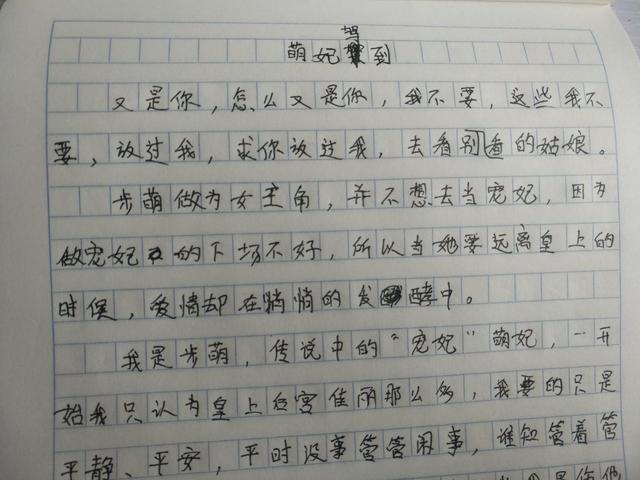 萌妃驾到
又是你，怎么又是你，我不要，这些我不
要，放过我，求你放过我，去看别的姑娘。
步萌做为女主角，并不想去当宠妃，因为
做宠妃的下场不好，所以当她要远离皇上的
时候，爱情却在悄悄的发酵中。
我是步萌，传说中的“宠妃”萌妃，一开
始我只认为皇上后宫佳丽那么多，我要的只是
平静、平安，平时没事管管闲事，谁知管着管